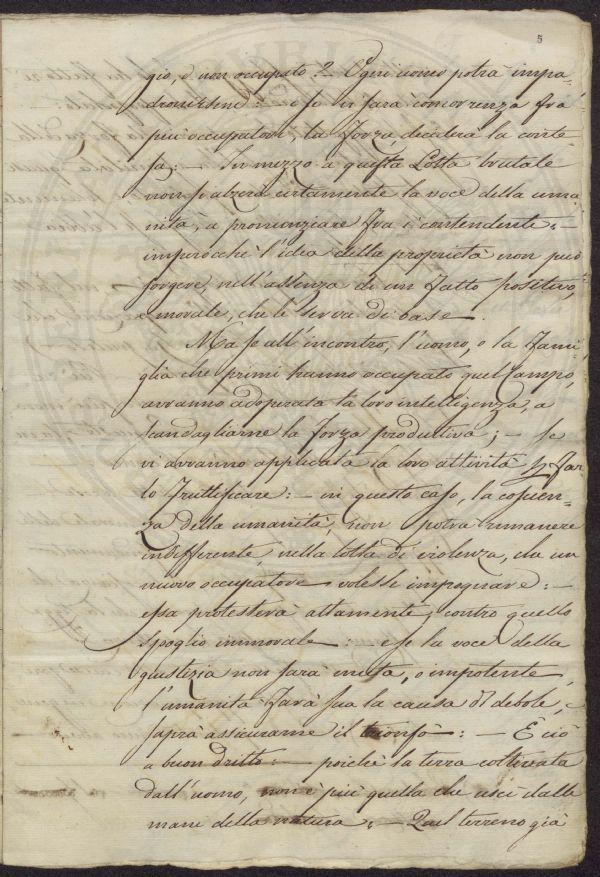 5
gio, è non occupato? – Ogni uomo potrà impa-
dronirsene: – e se vi sarà concorrenza frà
più occupatori, la forza deciderà la conte-
sa: – In mezzo a questa Lotta brutale
non si alzerà certamente la voce della uma-
nità, a pronunziare fra i contendenti: –
imperochè l'idea della proprietà non può
sorgere, nell'assenza di un fatto positivo,
e morale, che le serva di base.
Ma se all'incontro, l'uomo, o la Fami-
glia che primi hanno occupato quel Campo,
avranno adoperata la loro intelligenza, a
scandagliarne la forza produttiva; – se
vi avranno applicata la loro attività p far-
lo fruttificare: – in questo caso, la coscien-
za della umanità, non potrà rimanere
indifferente, nella lotta di violenza, che un
nuovo occupatore volesse impegnare: –
essa protesterà altamente, contro quello
spoglio immorale: – e se la voce della
giustizia non sarà muta, o impotente,
l'umanità farà sua la causa dl debole, e
saprà assicurarne il trionfo: – E ciò
a buon dritto: – poichè la terra coltivata
dall'uomo, non è più quella che uscì dalle
mani della natura: – Quel terreno già